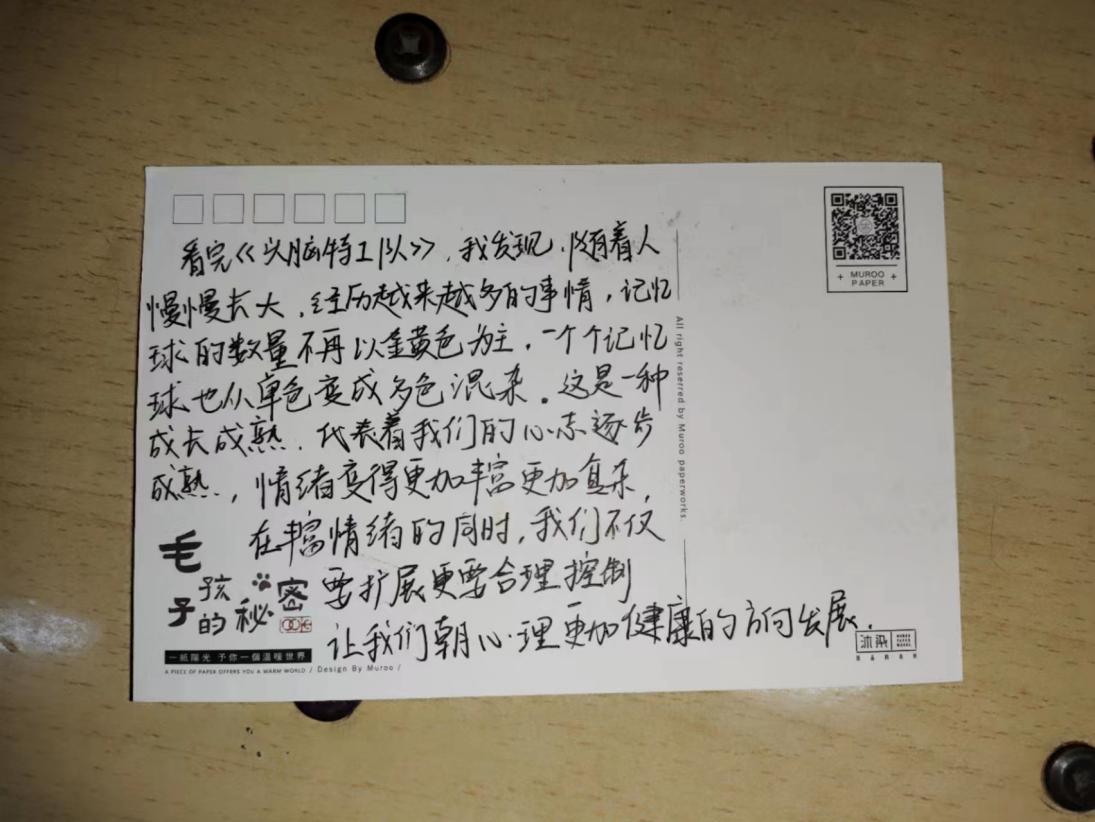 看完《头脑特工队》,我发现,随着人
慢慢长大,经历越来越多的事情,记忆
球的数量不再以金黄色为主,一个个记忆
球也从单色变成多色混杂。这是一种
成长成熟,代表着我们的心志逐步
成熟,情绪变得更加丰富更加复杂,
在丰富情绪的同时,我们不仅
要扩展更要合理控制
让我们朝心理更加健康的方向发展.
毛孩子的秘密
一紙陽光 予你一個溫暖世界
A PIECE OF PAPER OFFERS YOU A WARM WORLD / Design By Muroo /
MUROO
PAPER
All right reserred by Muroo paperworks.